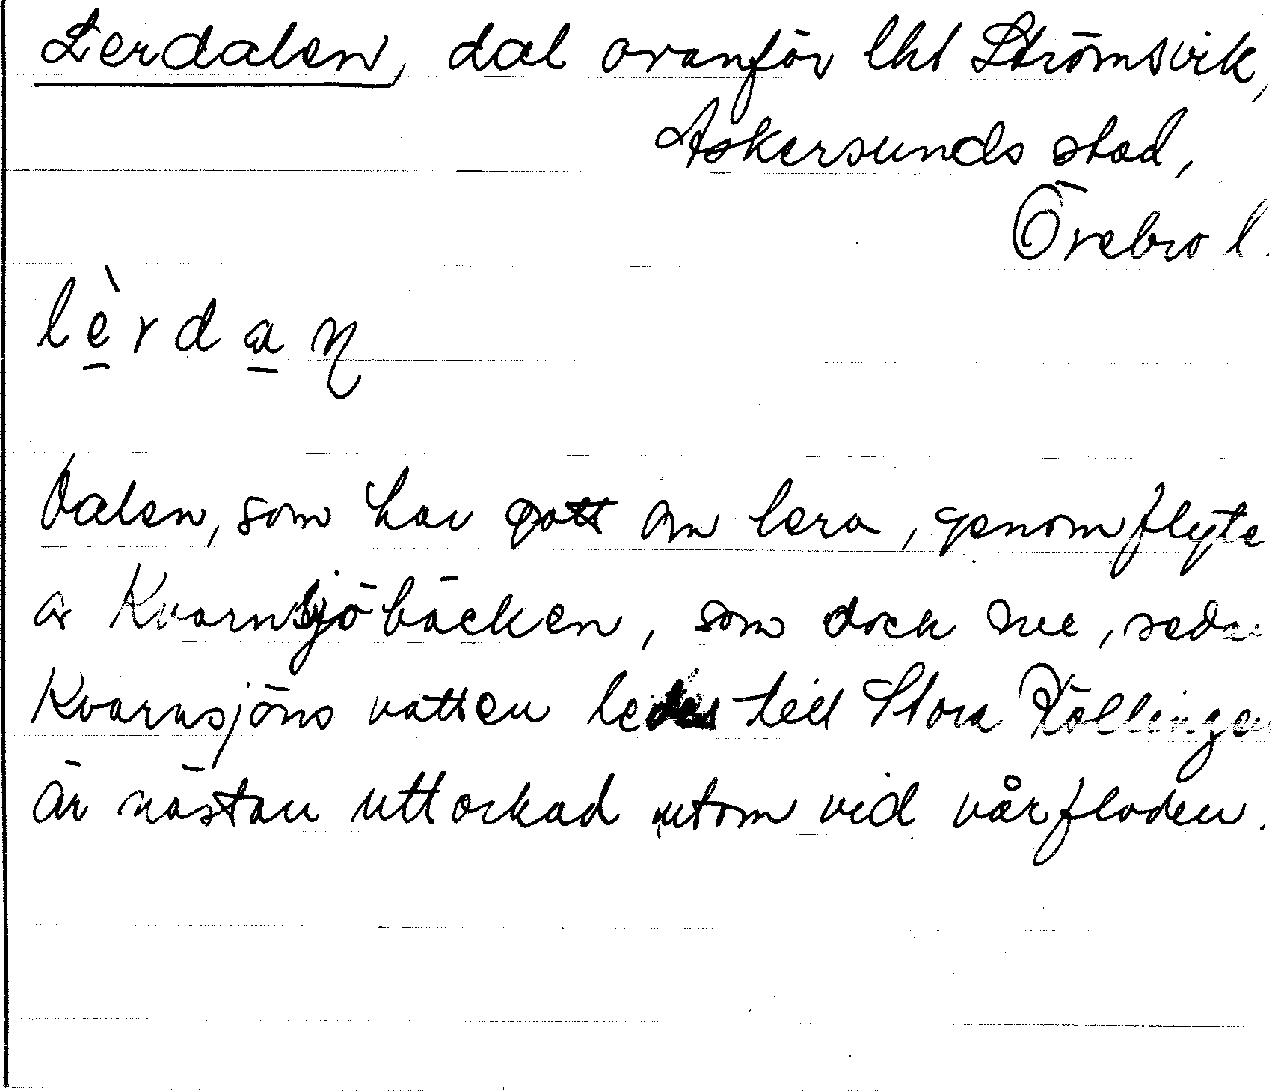 Lerdalen, dal ovanför lht Strömsvik,
Askersunds stad,
Örebro l.
lèrdaṇ
Dalen, som har gott om lera, genomflyte
av Kvarnsjöbäcken, som dock nu, seda
Kvarnsjöns vatten ledes till Stora Köllingen
är nästan uttorkad utom vid vårfloden.